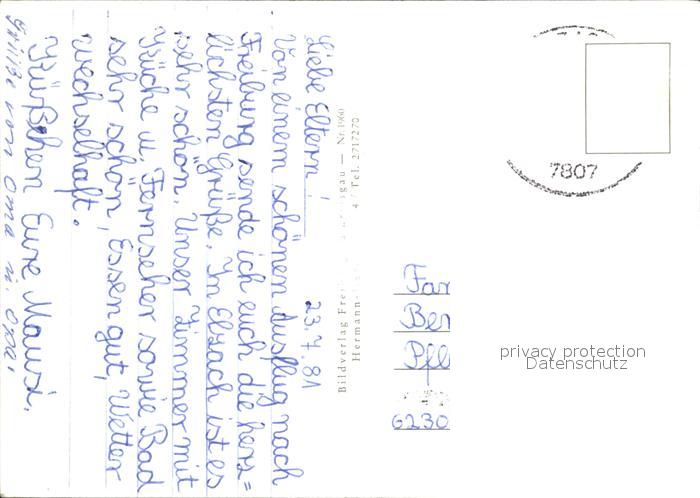 23.7.81
Liebe Eltern!
Von einem schönen Ausflug nach
Freiburg sende ich euch die herz=
lichsten Grüße. In Elzach ist es
sehr schön. Unser Zimmer mit
Küche u. Fernseher sowie Bad
sehr schön! Essen gut, Wetter
wechselhaft.
Küßchen Eure Mausi.
Grüße von Oma u. Opa.
Bildverlag Frei
sgau — Nr. 1960
Hermann-
4 / Tel. 2717270
7807
Fam
Ber
Pfl
6230
privacy protection
Datenschutz